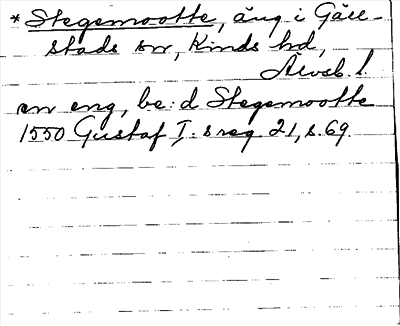 * Stegemootte, äng i Gäll-
stads sn, Kinds hd,
Älvsb. l.
en eng, be:d Stegemootte
1550 Gustaf I:s reg 21, s. 69.